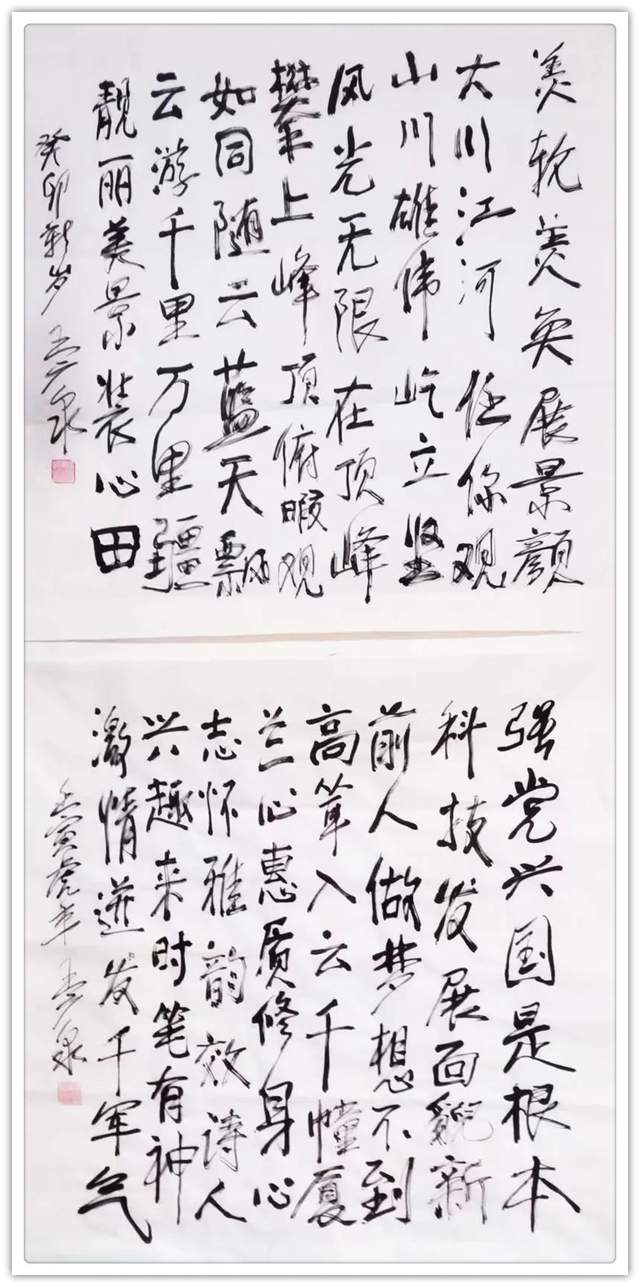 美轮美奂展景颜
大川江河任你观
山川雄伟屹立坚
风光无限在顶峰
攀上峰顶俯瞰观
如同随云蓝天飘
云游千里万里疆
靓丽美景装心田
癸卯新岁
强党兴国是根本
科技发展面貌新
前人做梦想不到
高耸入云千幢厦
兰心惠质修身心
志怀雅韵效诗人
兴趣来时笔有神
激情迸发千军气
壬寅虎年